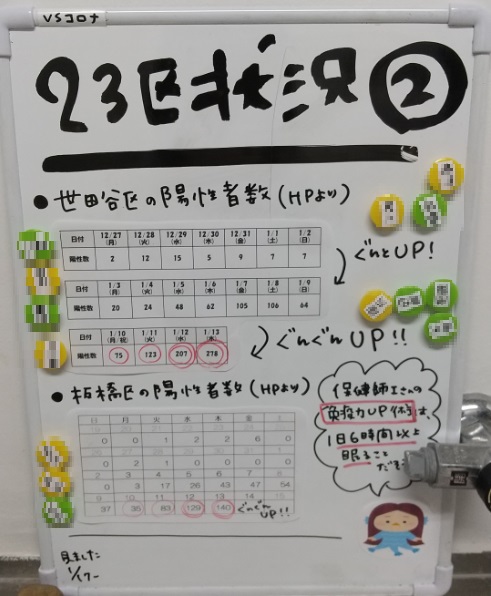 VSコロナ
23区状況②
● 世田谷区の陽性者数(HPより)
日付 12/27(月) 12/28(火) 12/29(水) 12/30(木) 12/31(金) 1/1(土) 1/2(日)
陽性数 2 12 15 5 9 7 7
ぐんとUP!
日付 1/3(月) 1/4(火) 1/5(水) 1/6(木) 1/7(金) 1/8(土) 1/9(日)
陽性数 20 24 48 62 105 106 64
日付 1/10(月・祝) 1/11(火) 1/12(水) 1/13(木)
陽性数 75 123 207 278
ぐんぐんUP!!
● 板橋区の陽性者数(HPより)
日 月 火 水 木 金 土
0 0 1 2 2 6 0
0 2 1 0 0 0 0
2 3 4 5 6 7 8
0 3 17 26 43 47 54
9 10 11 12 13 14
37 35 83 129 140
ぐんぐんUP!!
保健師さんの
免疫力UP術は、
1日6時間以上
眠ること
見ました
1/17